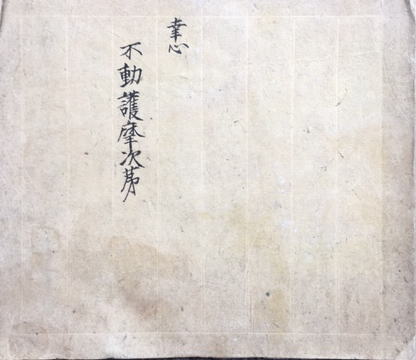 幸心
不動護摩次第